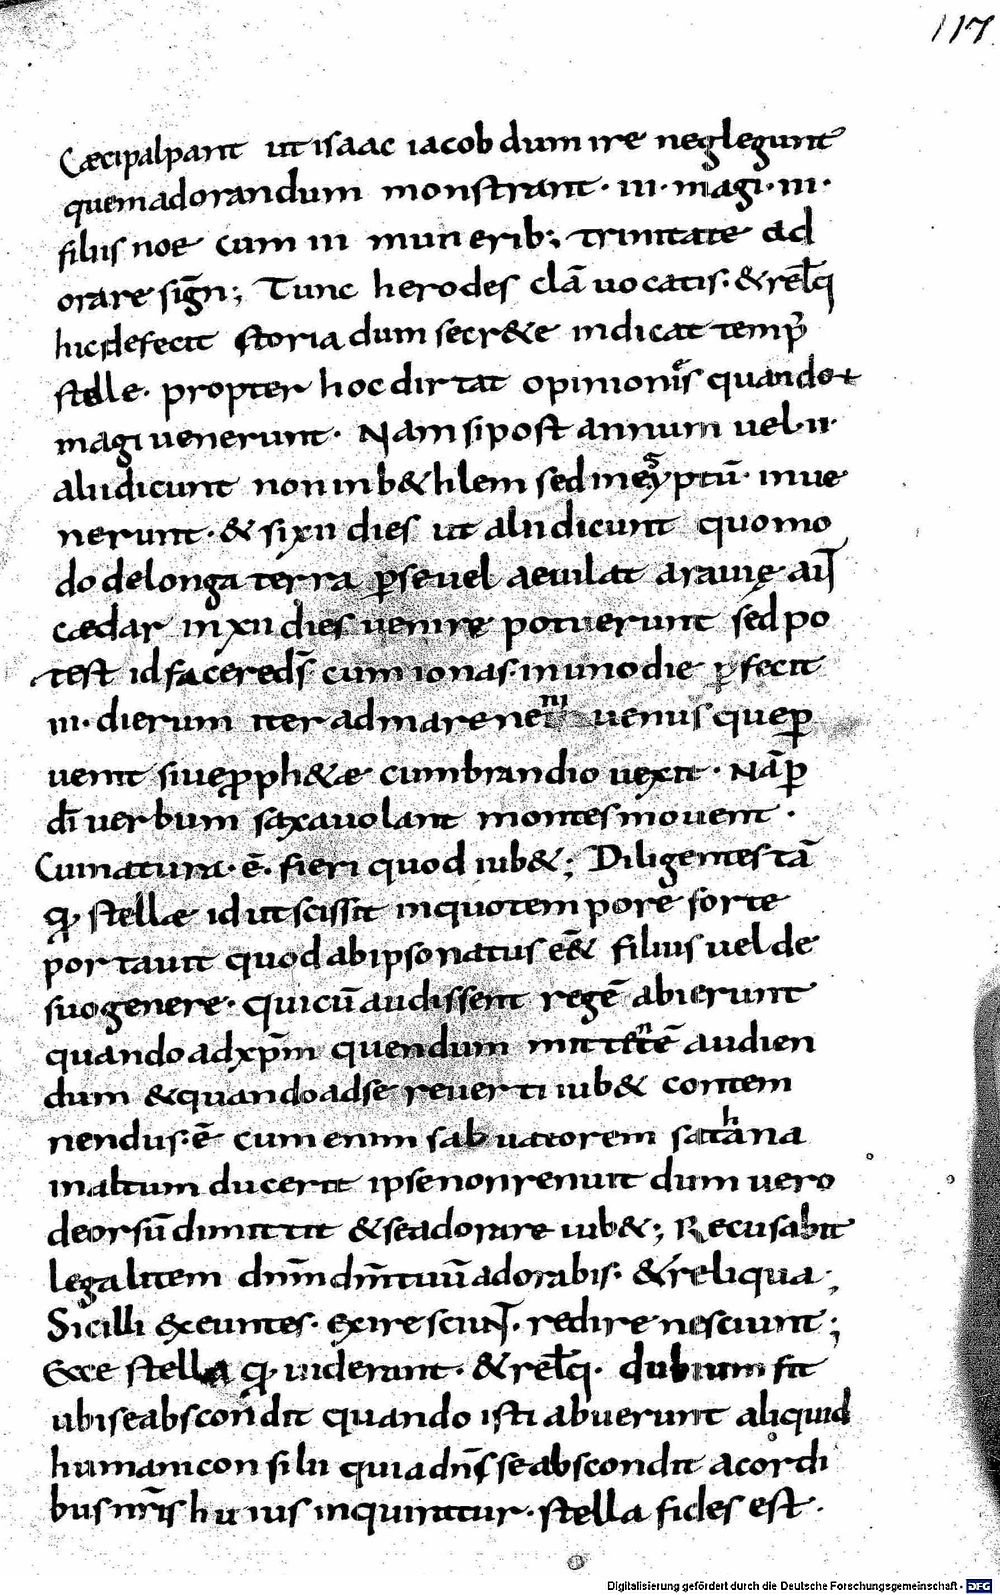 117
Cæcipalpant ut isaac iacob dum ire neglegunt
quem adorandum monstrant· iii· magi· iii·
filiis noe cum iii munerib; trinitate ad
orare sign̄; Tunc herodes clā uocatis· & reliq̄
hic defecit storia dum secr&e indicat temp̄
stelle· propter hoc dir tat opinionis quando
magi uenerunt· Nam si post annum uel ii·
alii dicunt non in b&hlem sed in egyptū· inue
nerunt· & si xii dies ut alii dicunt quomo
do de longa terra ꝑse uel aeuilat arauię aut
cædar in xii dies uenire potuerunt sed po
test id facere ds̄ cum ionas· in uno die ꝑfecit
iii· dierum iter ad mare uenus que ꝑ
uenit siue ꝓph&æ cum brandio uexit· Nā ꝑ
dī uerbum saxa uolant montes mouent·
Cui natura· ē· fieri quod iub&; Diligentes tā
q̄ stellæ id ut scissit in quo tempore forte
portauit quod ab ipso natus e& filius uel de
suo genere· qui cū audissent regē abierunt
quando ad xp̄m quendum mittentē audien
dum & quando ad se reuerti iub& contem
nendus· ē cum enim saluatorem sathana
in altum ducerit ipse non renuit dum uero
deorsū dimittit & se adorare iub&; Recusabit
legalitem dn̄m dm̄ tuū adorabis· & reliqua;
Sic illi exeuntes· exire sciunt· redire nesciunt;
Ecce stella q̄· uiderant· & reliq̄· dubium fit
ubi se abscondit quando isti abuerunt aliquid
humani consilii quia dn̄s se abscondit a cordi
bus nr̄is huius inquiratur· stella fides est·
Digitalisierung gefördert durch die Deutsche Forschungsgemeinschaft - DFG